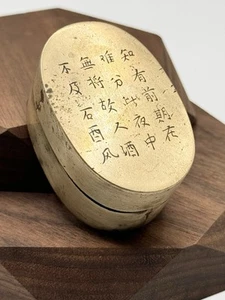 知有前期在
难分此夜中
無将故人酒
不及石酉风